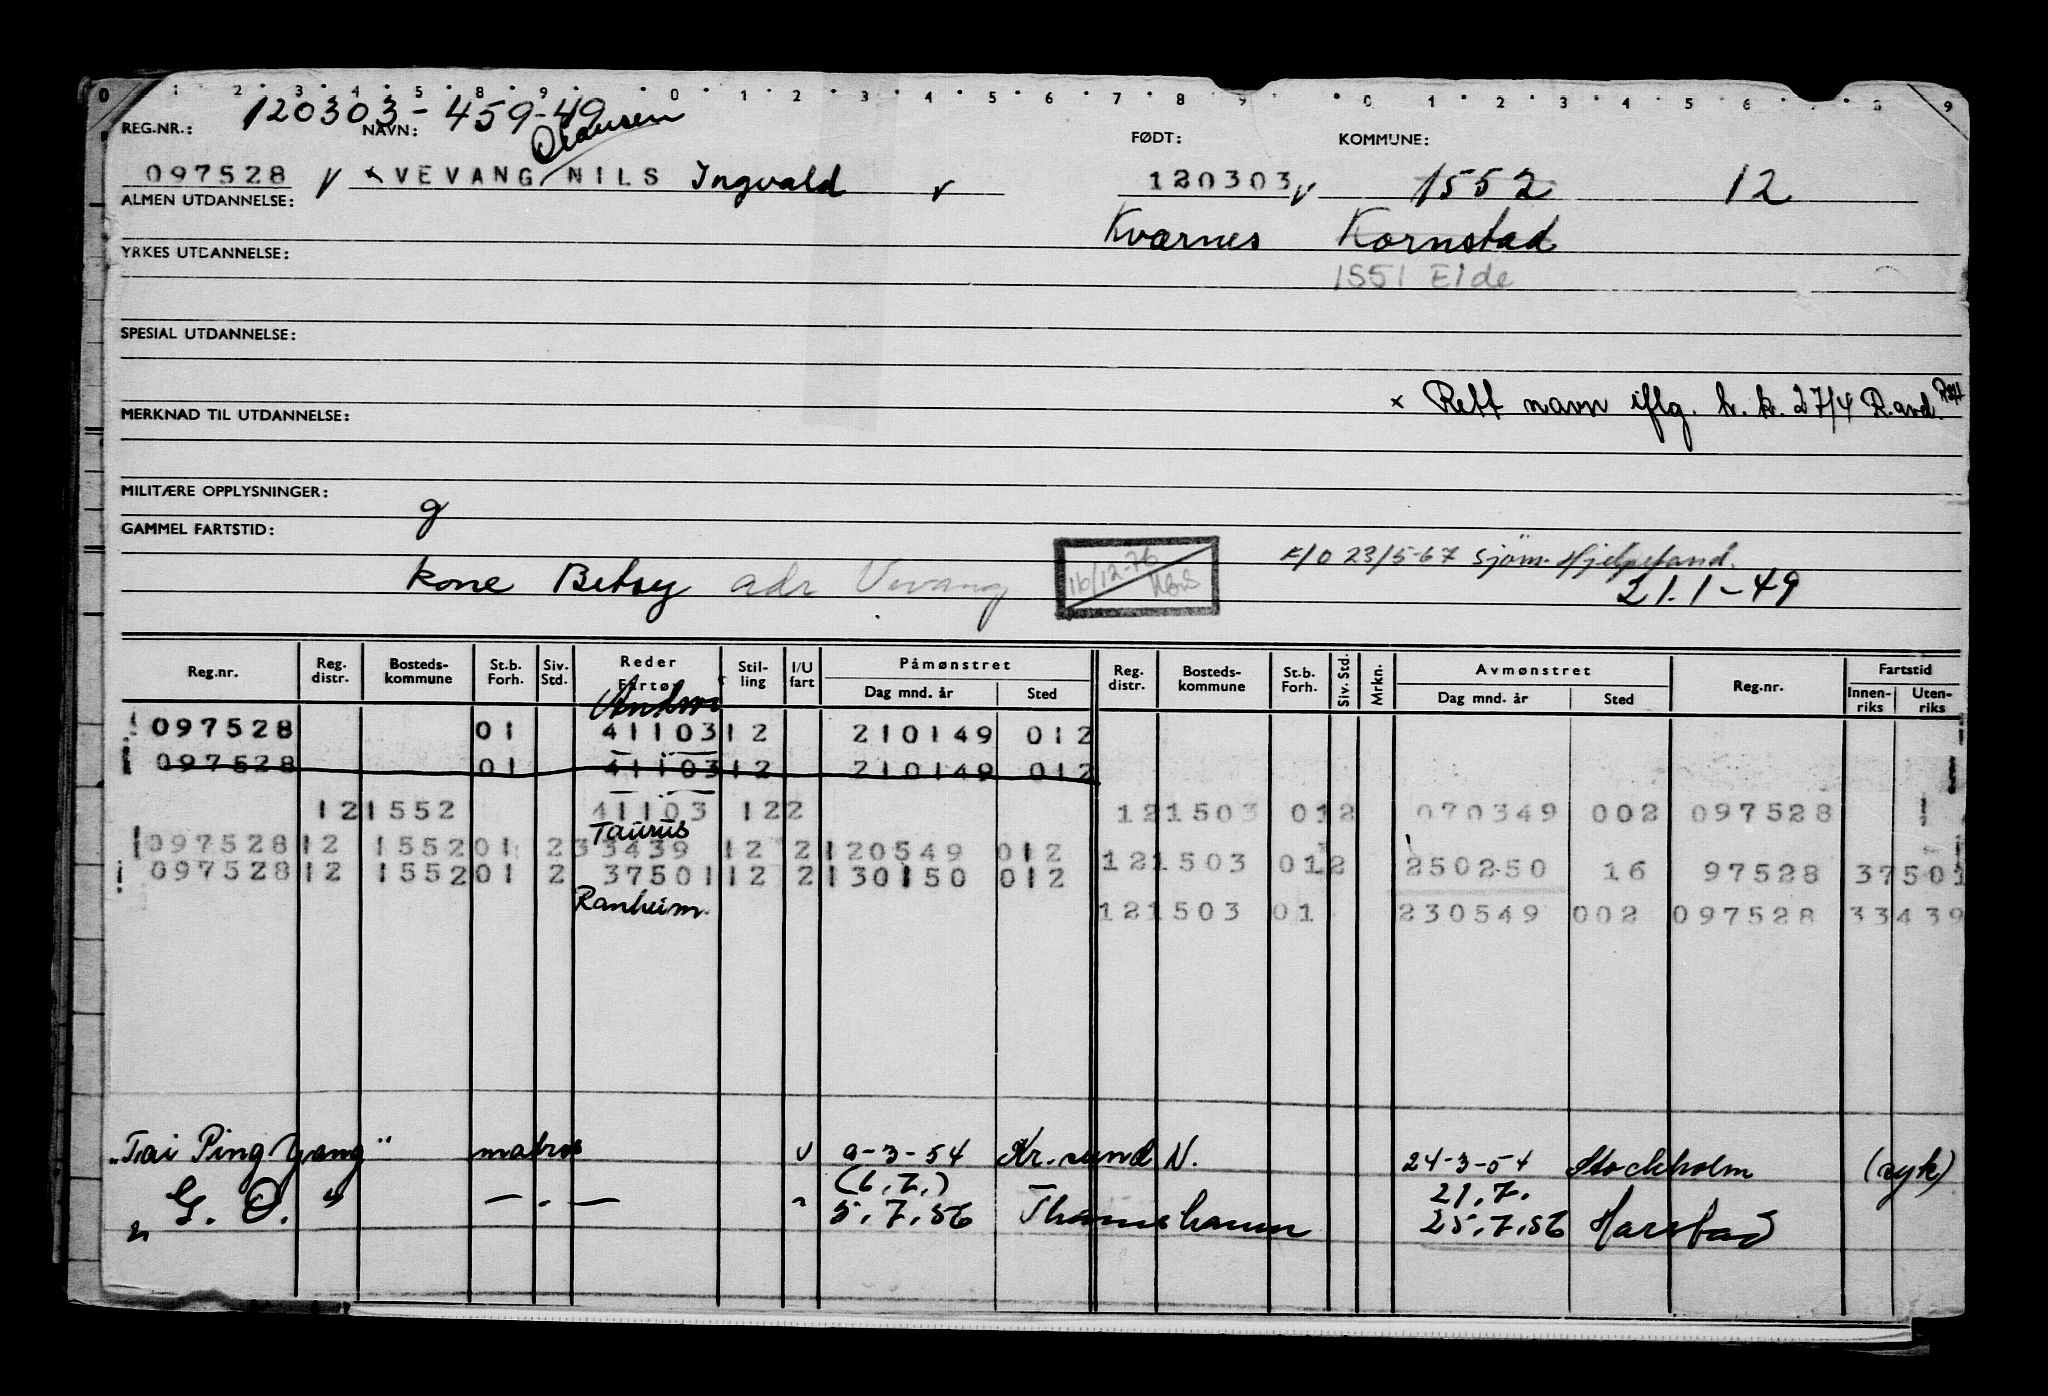 0 1 2 3 4 5 6 7 8 9 0 1 2 3 4 5 6 7 8 9 0 1 2 3 4 5 6 7 8 9
120303-459-49
REG.NR.: NAVN: Olausen FØDT: KOMMUNE:
097528 v × VEVANG/NILS Ingvald v 120303 v 1552 12
ALMEN UTDANNELSE:
Kvernes Kornstad
YRKES UTDANNELSE:
1551 Eide
SPESIAL UTDANNELSE:
× Rett navn iflg. h. k. 27/4 R.avd.
MERKNAD TIL UTDANNELSE:
MILITÆRE OPPLYSNINGER:
g
GAMMEL FARTSTID:
F/O 23/5-67 Sjöm. Hjelpefand.
kone Betsy adr Vevang 16/12-76 21.1-49
Reg.nr. Reg. distr. Bosteds-kommune St.b. Forh. Siv. Std. Reder Fartøy Stil-ling I/U fart Påmønstret Dag mnd. år Sted Reg. distr. Bosteds-kommune St.b. Forh. Siv. Std. Mrkn. Avmønstret Dag mnd. år Sted Reg.nr. Fartstid Innen-riks Uten-riks
097528 01 41103 12 210149 012
097528 01 41103 12 210149 012
12 1552 41103 12 2 12 1503 01 2 070349 002 097528
Taurus
097528 12 1552 01 2 33439 12 2 120549 012
097528 12 1552 01 2 37501 12 2 130150 012 12 1503 01 2 250250 16 97528 37501
Ranheim. 12 1503 01 230549 002 097528 33439
"Tai Ping Yang" matros v 9-3-54 Kr.sund N. 24-3-54 Stockholm (syk)
(6.7.) 21.7.
" G. O. " — . — " 5.7.56 Thamshavn 25.7.56 Harstad